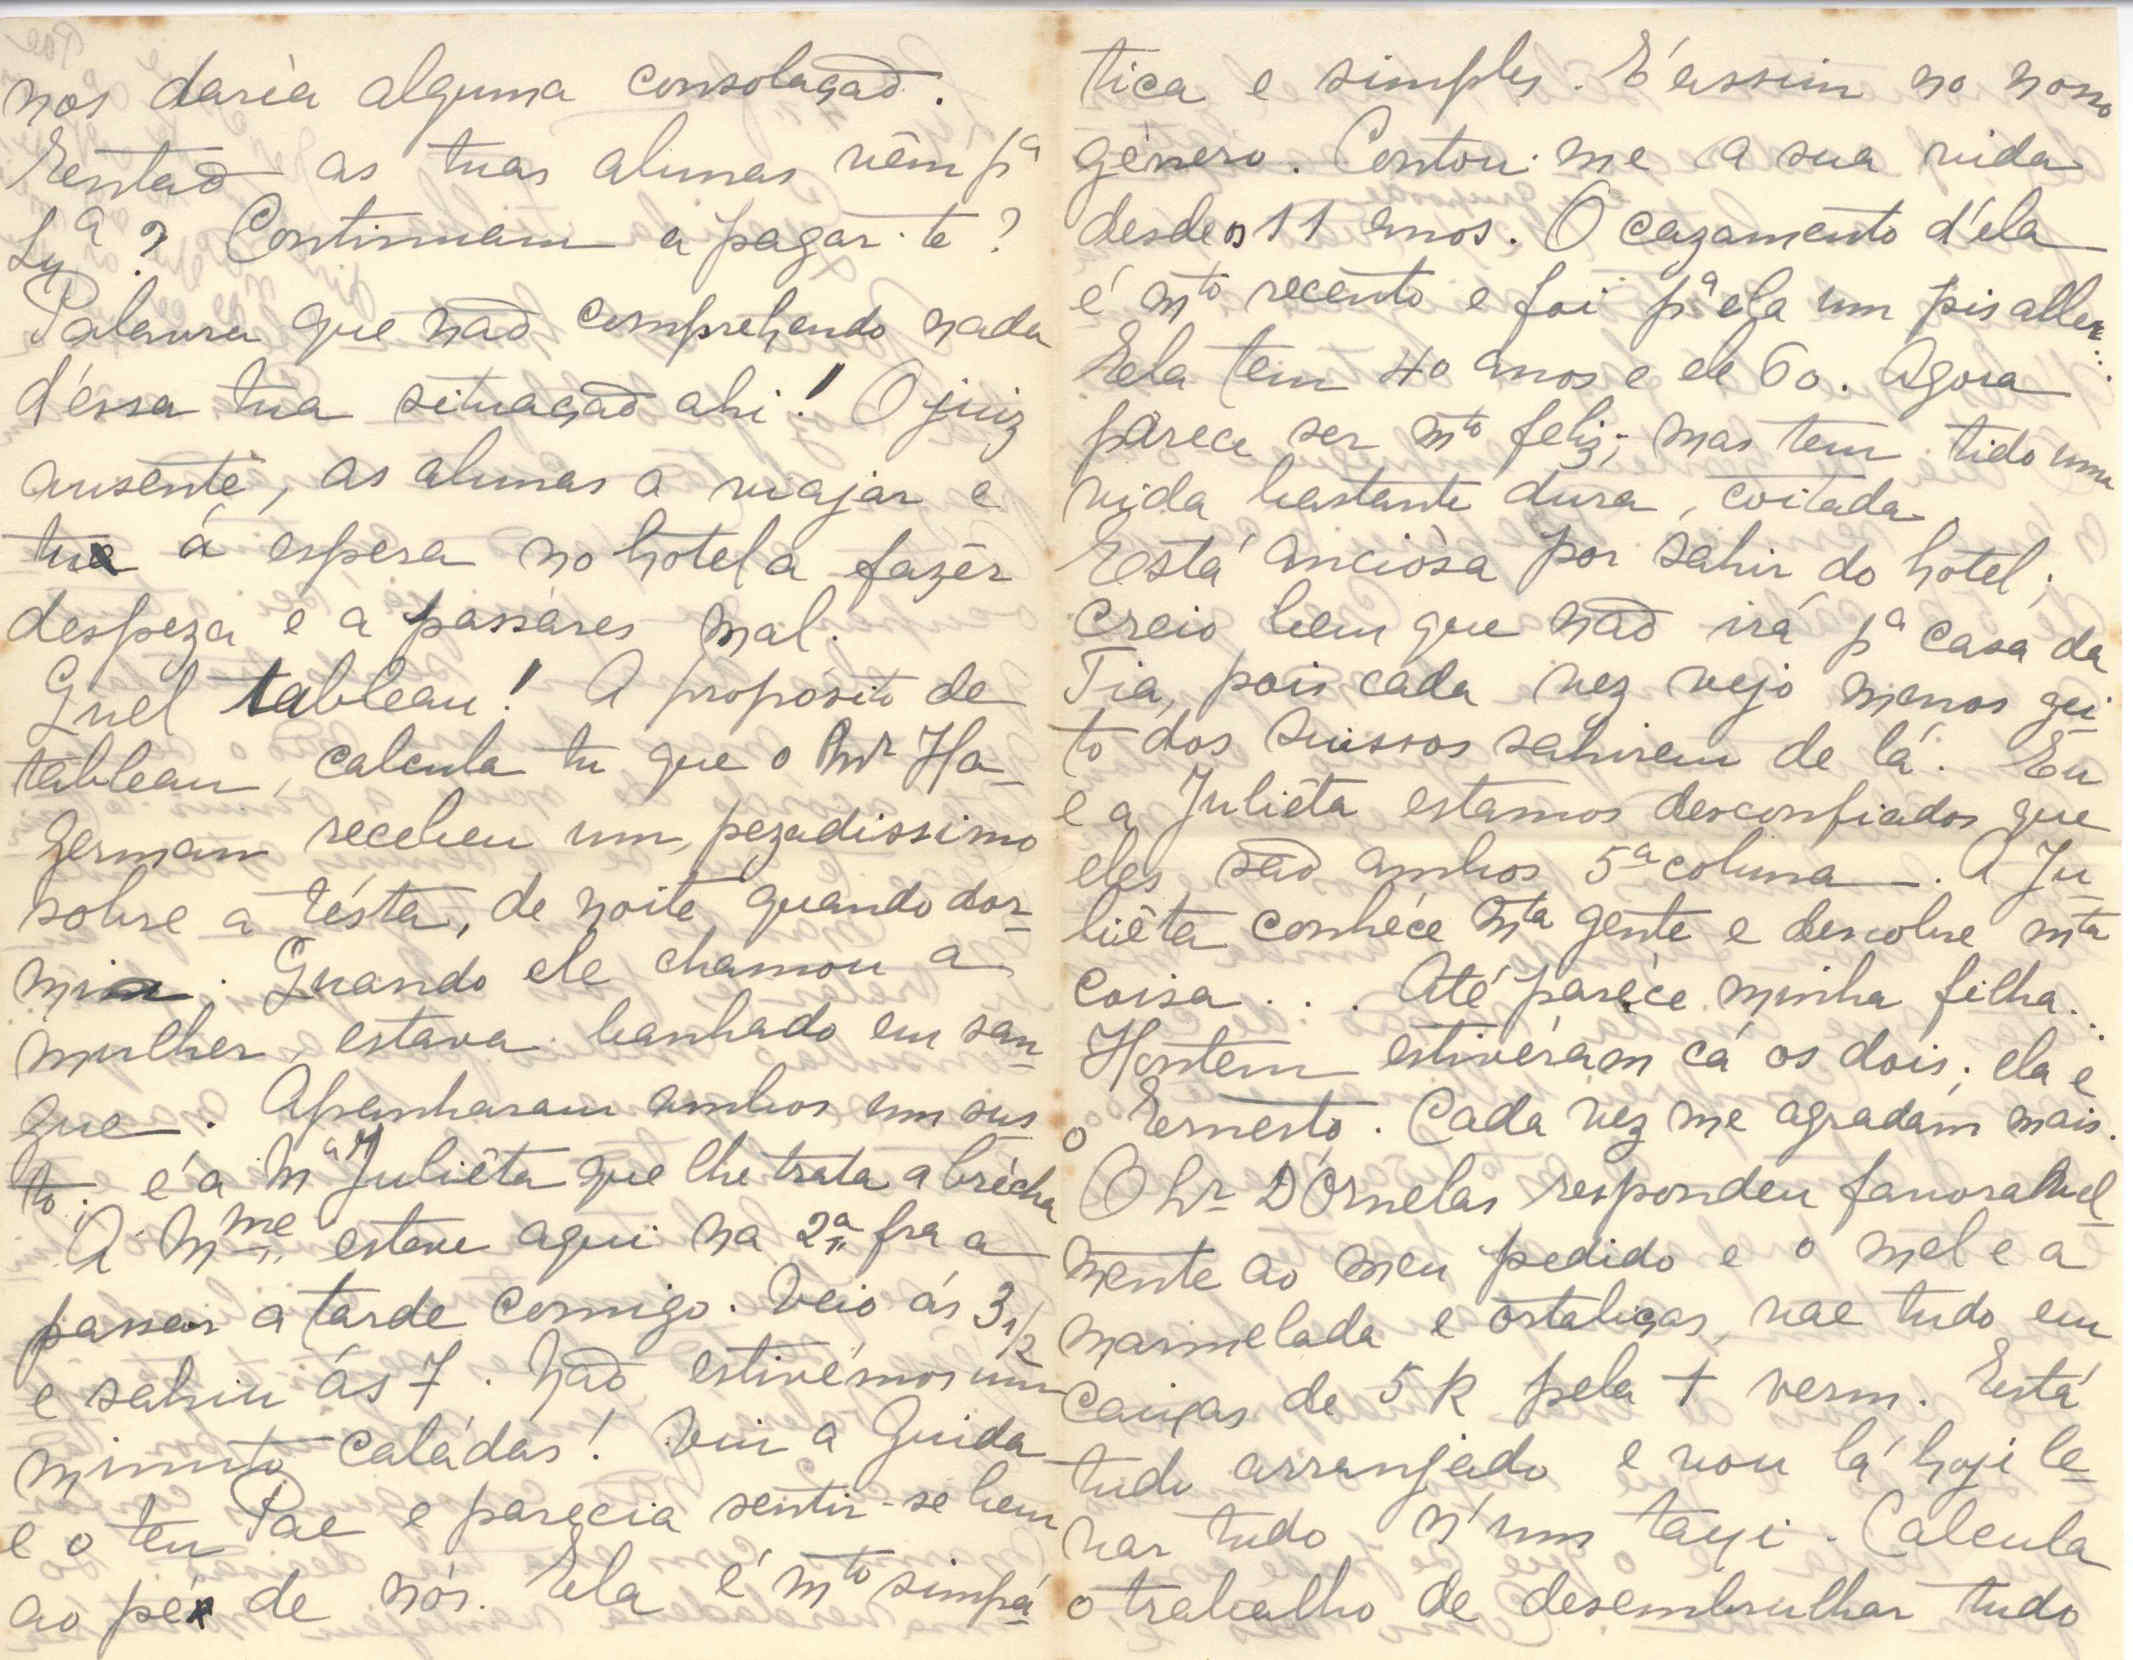 nos daría alguma consolação.
E então as tuas alunas vêm pª
Lxª? Continuam a pagar-te?
Palavra que não comprehendo nada
d'éssa tua situação ahi! O juiz
ausente, as alunas a viajar e
tu á espera no hotel a fazêr
despeza e a passares mal.
Quel tableau! A propósito de
tableau, calcula tu que o Snr Ha-
german recebeu um, pezadissimo
sobre a tésta, de noite quando dor-
mia. Quando ele chamou a
mulher, estava banhado em san-
gue. Apanharam ambos um sus-
to; é a Mª Juliêta que lhe trata a brécha
A Mme esteve aqui na 2ª fra a
passar a tarde comigo. Veio ás 3 1/2
e sahiu ás 7. Não estivémos um
minuto caládas! Viu a Guida
e o teu Pae e parecia sentir-se bem
ao pé de nós. Ela é mto simpá-
tica e simples. É assim no nosso
género. Contou-me a sua vida
desde os 11 anos. O cazamento d'éla
é mto recente e foi pª ela um pis aller...
Ela tem 40 anos e ele 60. Agora
parece ser mto feliz; mas tem tido uma
vida bastante dura, coitada.
Está anciósa por sahir do hotel;
creio bem que não irá pª casa da
Tia, pois cada vez vejo menos gei-
to dos suissos sahirem de lá. Eu
e a Juliêta estamos desconfiados que
eles são ambos 5ª coluna. A Ju-
liêta conhéce mta gente e descobre mta
coisa... Até paréce minha filha...
Hontem estivéram cá os dois; ela e
o Ernesto. Cada vez me agradam mais.
O Snr D'Ornelas respondeu favoravel-
mente ao meu pedido e o mel e a
marmelada e ortaliças, vae tudo em
caixas de 5 k pela + verm. Está
tudo arranjado e vou lá hoje le-
var tudo n'um taxi. Calcula
o trabalho de desembrulhar tudo